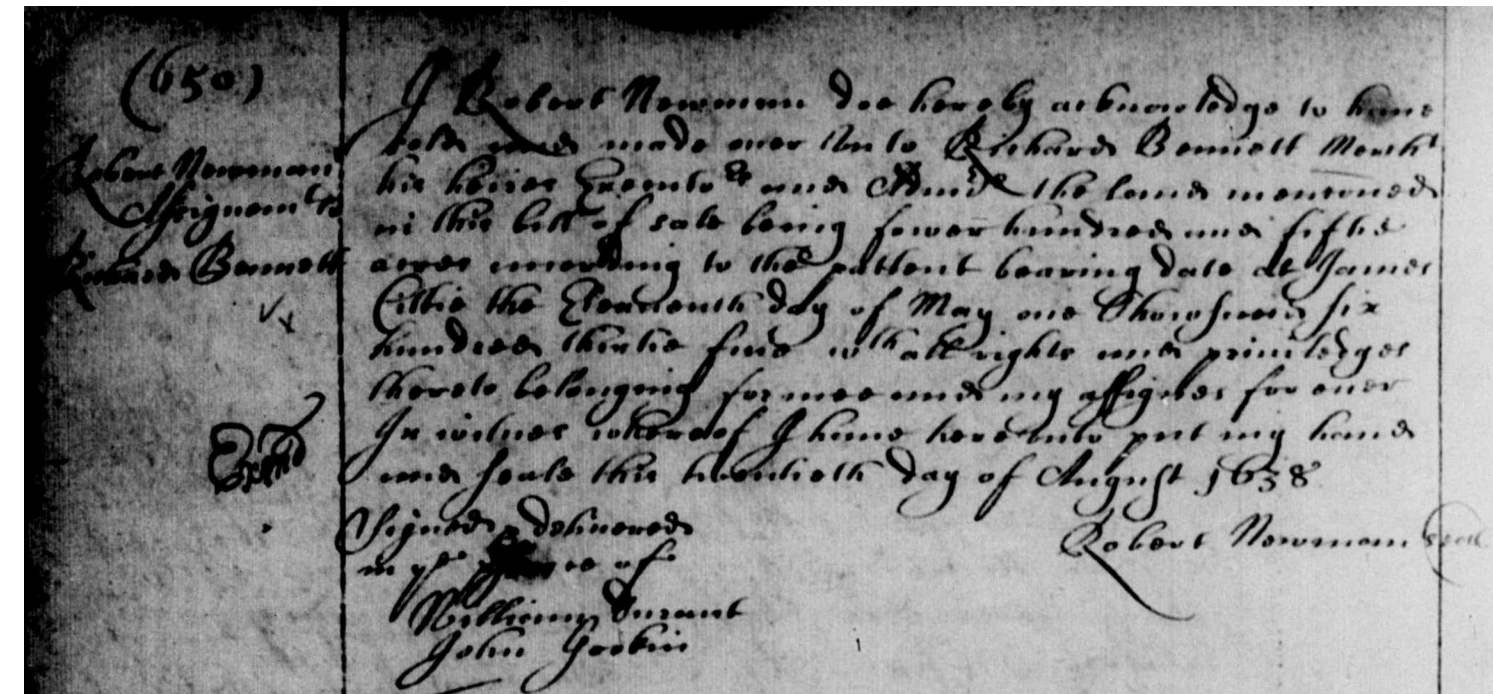 (650)
Robert Newman
Assignemt to
Richard Bennett
Exam̄d
I Robert Newman doe hereby acknowledge to haue
sold and made over Unto Richard Bennett Marcht
his heires Executors and Admrs the land mentoned
in this bill of sale being fower hundred and fiftie
acres according to the pattent bearing date at James
Cittie the Eleaventh day of May one Thowsand six
hundred thirtie five wth all rights and priuiledges
thereto belonging for mee and my assignes for ever
In witnes whereof I haue here unto put my hand
and seale this twentieth day of August 1638
Signed & delivered
in ye of
William Durant
John Gookin
Robert Newman seal